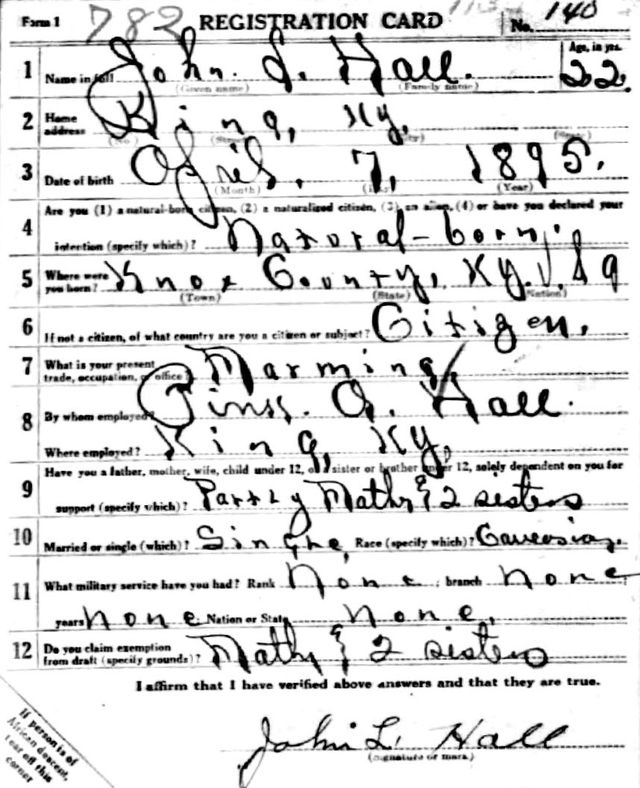 Form 1 782 REGISTRATION CARD No. 140
1 Name in full John L. Hall. Age, in yrs. 22
(Given name) (Family name)
2 Home address King, Ky.
(No.) (Street) (City) (State)
3 Date of birth April, 7, 1895.
(Month) (Day) (Year)
Are you (1) a natural-born citizen, (2) a naturalized citizen, (3) an alien, (4) or have you declared your
4 intention (specify which)? Natural-born.
5 Where were you born? Knox County, Ky.
(Town) (State) (Nation)
6 If not a citizen, of what country are you a citizen or subject? Citizen.
7 What is your present trade, occupation, or office? Farming
8 By whom employed? Hall.
Where employed? King, Ky.
Have you a father, mother, wife, child under 12, or a sister or brother under 12, solely dependent on you for
9 support (specify which)? Partly Mothr & 2 sisters
10 Married or single (which)? Single, Race (specify which)? Caucasian.
11 What military service have you had? Rank None ; branch None
years None Nation or State None.
12 Do you claim exemption from draft (specify grounds)? Mothr & 2 sisters
I affirm that I have verified above answers and that they are true.
John L. Hall
(Signature or mark)
If person is of
African descent,
tear off this
corner